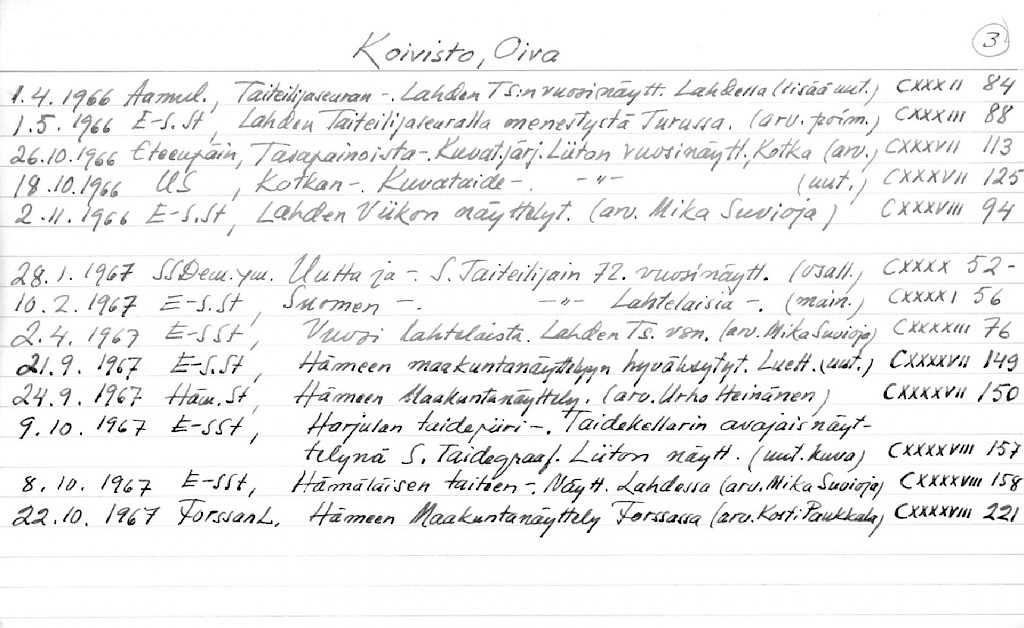 Koivisto, Oiva
3
1.4.1966 Aamul., Taiteilijaseuran -. Lahden TS:n vuosinäytt. Lahdessa (lisää uut.) CXXXII 84
1.5.1966 E-S.St, Lahden Taiteilijaseuralla menestystä Turussa. (arv. poim.) CXXXIII 88
26.10.1966 Eteenpäin, Tasapainoista -. Kuvat.järj. Liiton vuosinäytt., Kotka (arv.) CXXXVII 113
18.10.1966 US , Kotkan -. Kuvataide -. -"- (uut.) CXXXVII 125
2.11.1966 E-S.St, Lahden Viikon näyttelyt. (arv. Mika Suvioja) CXXXVIII 94
28.1.1967 SSDem.ym. Uutta ja -. S. Taiteilijain 72. vuosinäytt. (osall.) CXXXX 52-
10.2.1967 E-S.St, Suomen -. -"- Lahtelaisia -. (main.) CXXXXI 56
2.4.1967 E-SSt, Vuosi lahtelaista. Lahden TS. vsn. (arv. Mika Suvioja) CXXXXIII 76
21.9.1967 E-S.St, Hämeen maakuntanäyttelyyn hyväksytyt. Luett. (uut.) CXXXXVII 149
24.9.1967 Häm.St, Hämeen Maakuntanäyttely. (arv. Urho Heinänen) CXXXXVII 150
9.10.1967 E-SSt, Harjulan taidepiiri -. Taidekellarin avajaisnäyt-
telynä S. Taidegraaf. Liiton näytt. (uut. kuva) CXXXXVIII 157
8.10.1967 E-SSt, Hämäläisen taiteen -. Näytt. Lahdessa (arv. Mika Suvioja) CXXXXVIII 158
22.10.1967 ForssanL. Hämeen Maakuntanäyttely Forssassa (arv. Kosti Paukkala) CXXXXVIII 221